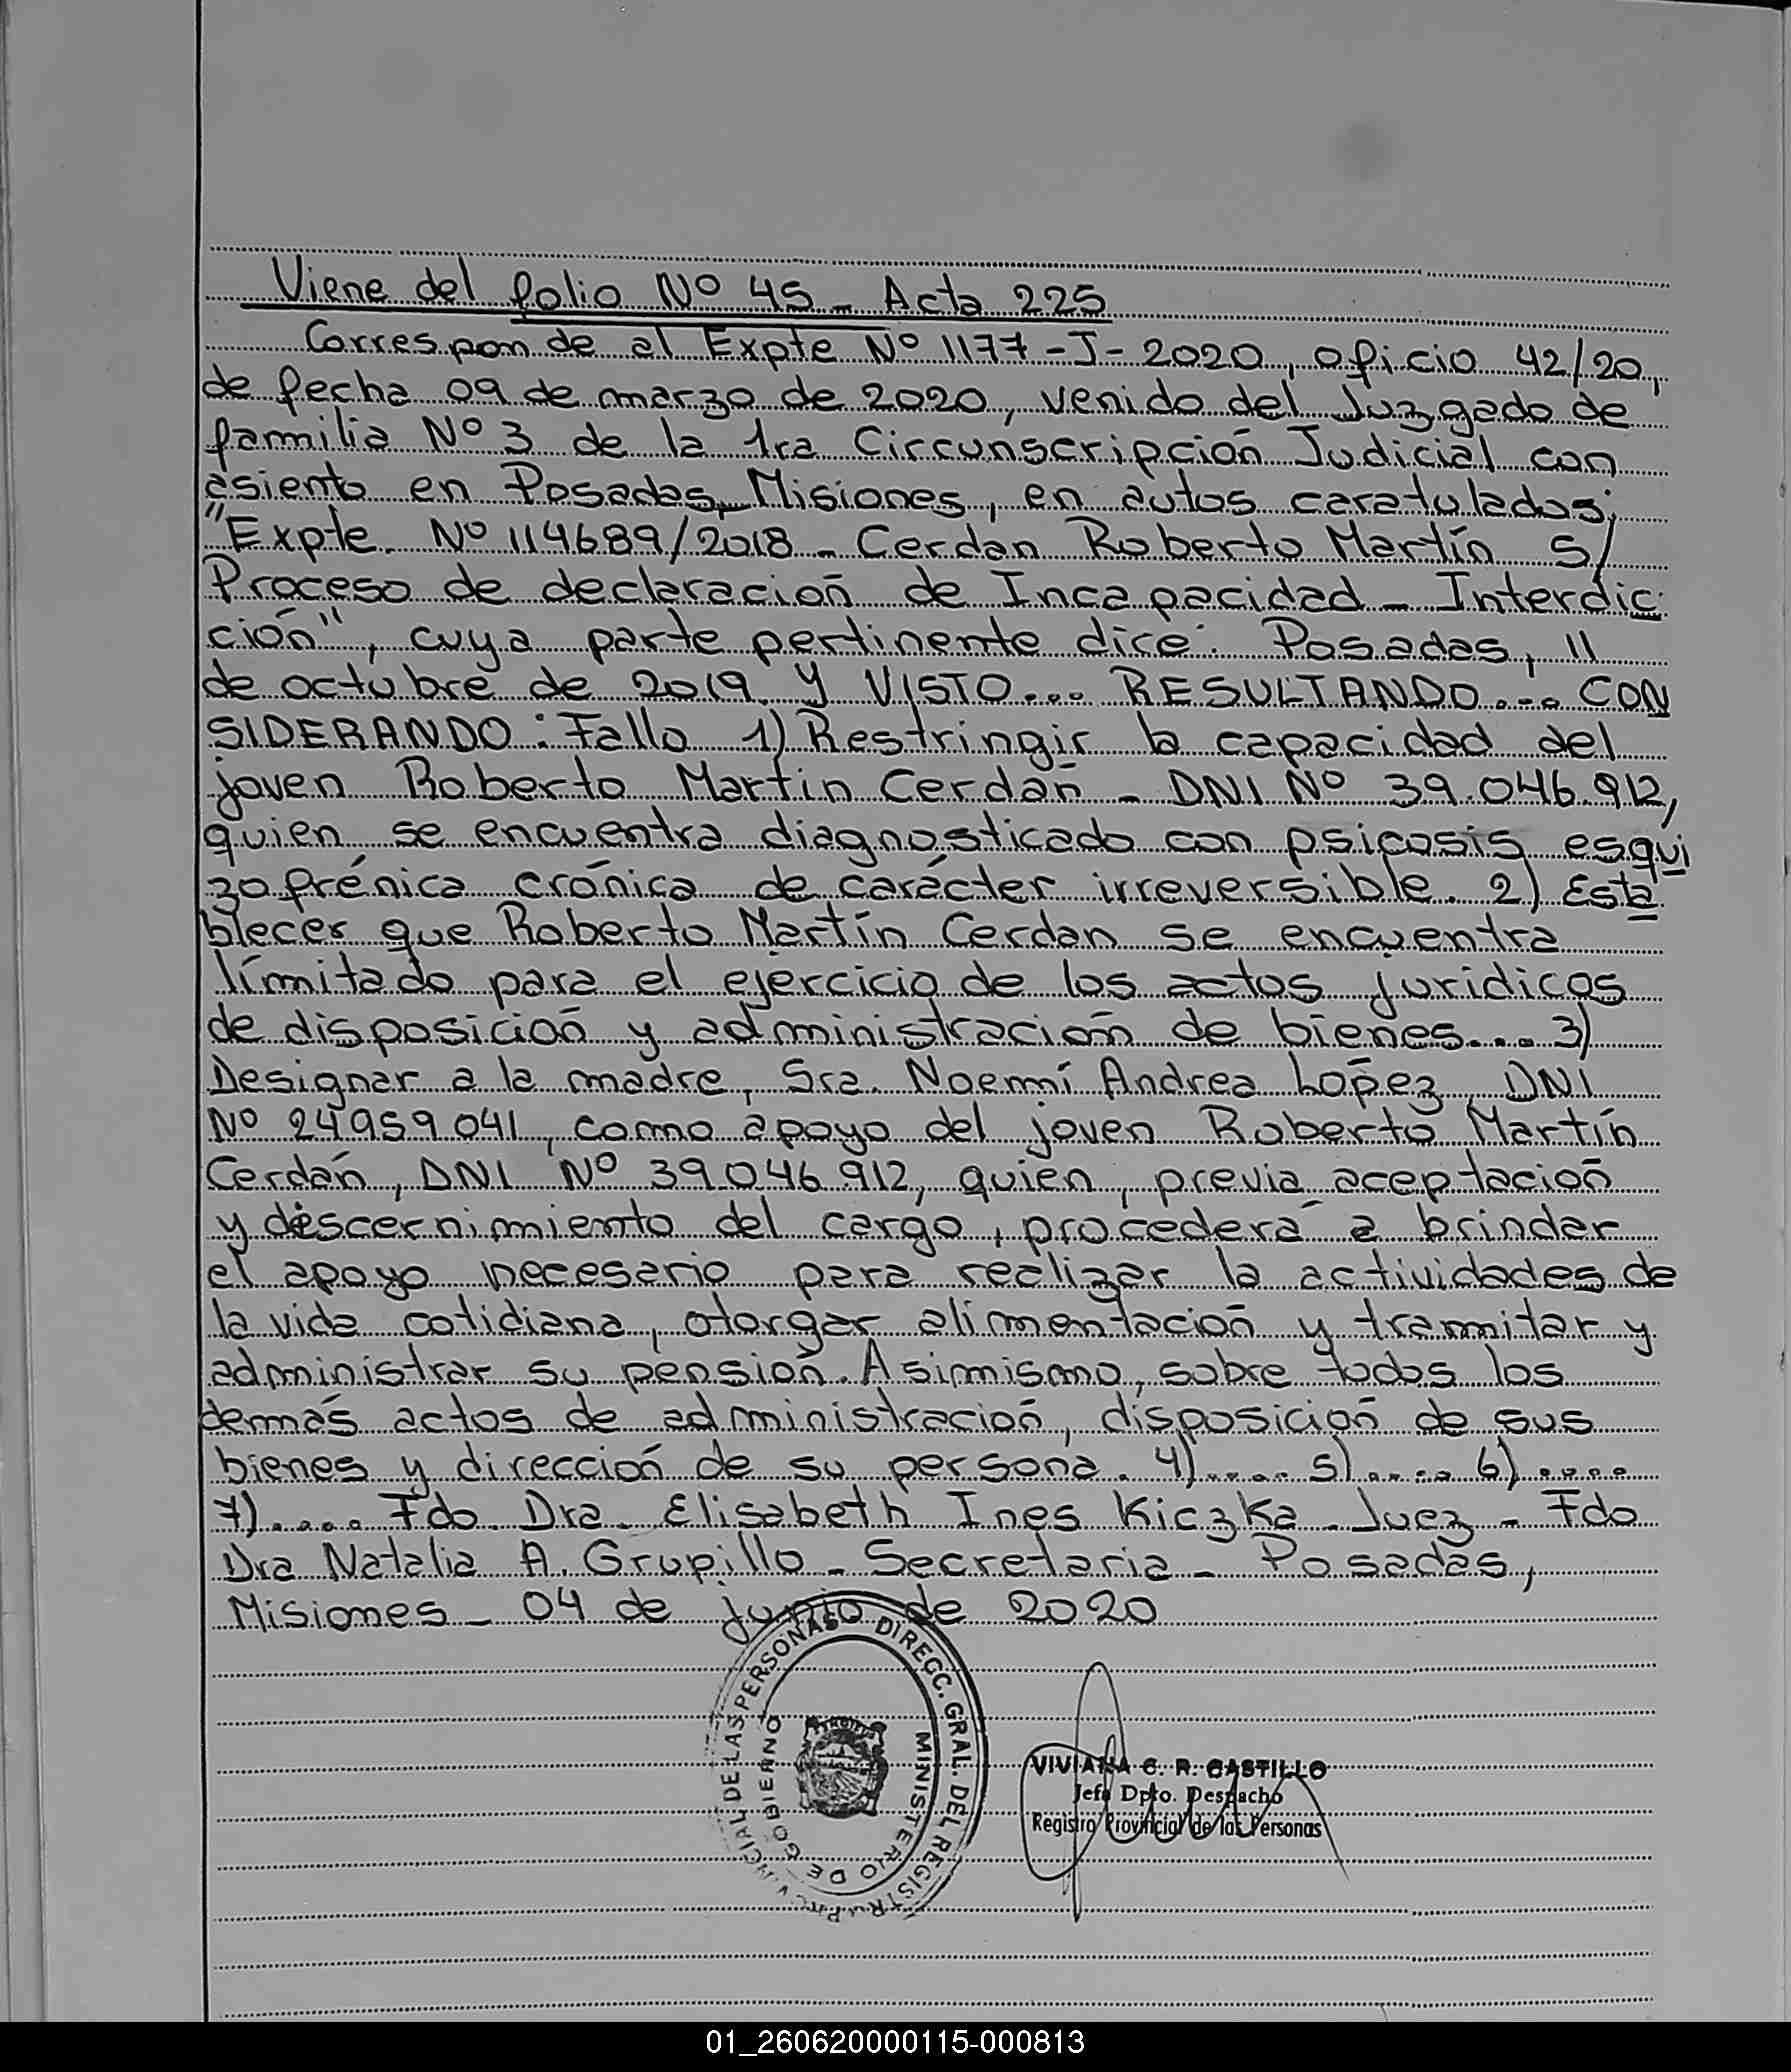 Viene del folio Nº 45 - Acta 225
Correspon de al Expte Nº 1177-J-2020, oficio 42/20,
de fecha 09 de marzo de 2020, venido del Juzgado de
familia Nº 3 de la 1ra Circunscripción Judicial con
asiento en Posadas, Misiones, en autos caratulados:
"Expte. Nº 114689/2018 - Cerdan Roberto Martín S/
Proceso de declaración de Incapacidad - Interdic
ción", cuya parte pertinente dice: Posadas, 11
de octubre de 2019 y VISTO... RESULTANDO.... CON
SIDERANDO: Fallo 1) Restringir la capacidad del
joven Roberto Martin Cerdán - DNI Nº 39.046.912,
quien se encuentra diagnosticado con psicosis esqui
zofrénica crónica de carácter irreversible. 2) Esta
blecer que Roberto Martín Cerdan se encuentra
límitado para el ejercicio de los actos juridicos
de disposición y administración de bienes.... 3)
Designar a la madre, Sra. Noemí Andrea López, DNI
Nº 24959041, como apoyo del joven Roberto Martín
Cerdán, DNI Nº 39.046.912, quien, previa aceptación
y discernimiento del cargo, procederá a brindar
el apoyo necesario para realizar la actividades de
la vida cotidiana, otorgar alimentación y tramitar y
administrar su pensión. Asimismo, sobre todos los
demás actos de administración, disposición de sus
bienes y dirección de su persona. 4)..... 5)..... 6).....
7)..... Fdo. Dra. Elisabeth Ines Kiczka - Juez - Fdo
Dra Natalia A. Grupillo - Secretaria - Posadas,
Misiones - 04 de junio de 2020
DIRECC. GRAL. DEL REGISTRO PROVINCIAL DE LAS PERSONAS
MINISTERIO DE GOBIERNO
VIVIANA C. R. CASTILLO
Jefa Dpto. Despacho
Registro Provincial de las Personas
01_260620000115-000813